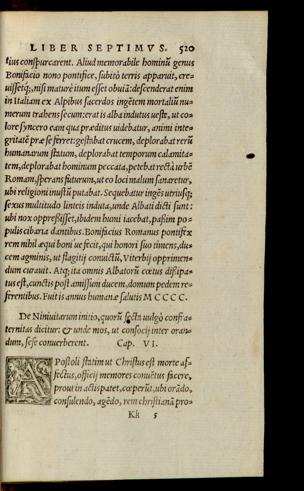 LIBER SEPTIMVS. 520
tius conspurcarent. Aliud memorabile hominũ genus
Bonifacio nono pontifice, subitò terris apparuit, cre-
uissetq;, nisi maturè itum esset obuiã: descenderat enim
in Italiam ex Alpibus sacerdos ingẽtem mortaliũ nu-
merum trahens secum: erat is alba indutus ueste, ut co-
lore syncero eam qua præditus uidebatur, animi inte-
gritatẽ præ se ferret: gestibat crucem, deplorabat rerũ
humanarum statum, deplorabat temporum calamita-
tem, deplorabat hominum peccata, petebat rectà urbẽ
Romam, sperans futurum, ut eo loci malum sanaretur,
ubi religioni inustũ putabat. Sequebatur ingẽs utriusq;
sexus multitudo linteis induta, unde Albati dicti sunt:
ubi nox oppressisset, ibidem humi iacebat, passim po-
pulis cibaria dantibus. Bonifacius Romanus pontifex
rem nihil æqui boni ue fecit, qui honori suo timens, du-
cem agminis, ut flagitij conuictũ, Viterbij opprimen-
dum curauit. Atq; ita omnis Albatorũ cœtus dissipa-
tus est, cunctis post amissum ducem, domum pedem re-
ferentibus. Fuit is annus humanæ salutis M CCCC.
De Niniuitarum initio, quorũ secta uulgò confra-
ternitas dicitur: & unde mos, ut consocij inter oran-
dum, sese conuerberent. Cap. VI.
APostoli statim ut Christus est morte af-
fectus, officij memores conuẽtus facere,
prout in actis patet, cœperũt, ubi orãdo,
consulendo, agẽdo, rem christianã pro-
Kk 5